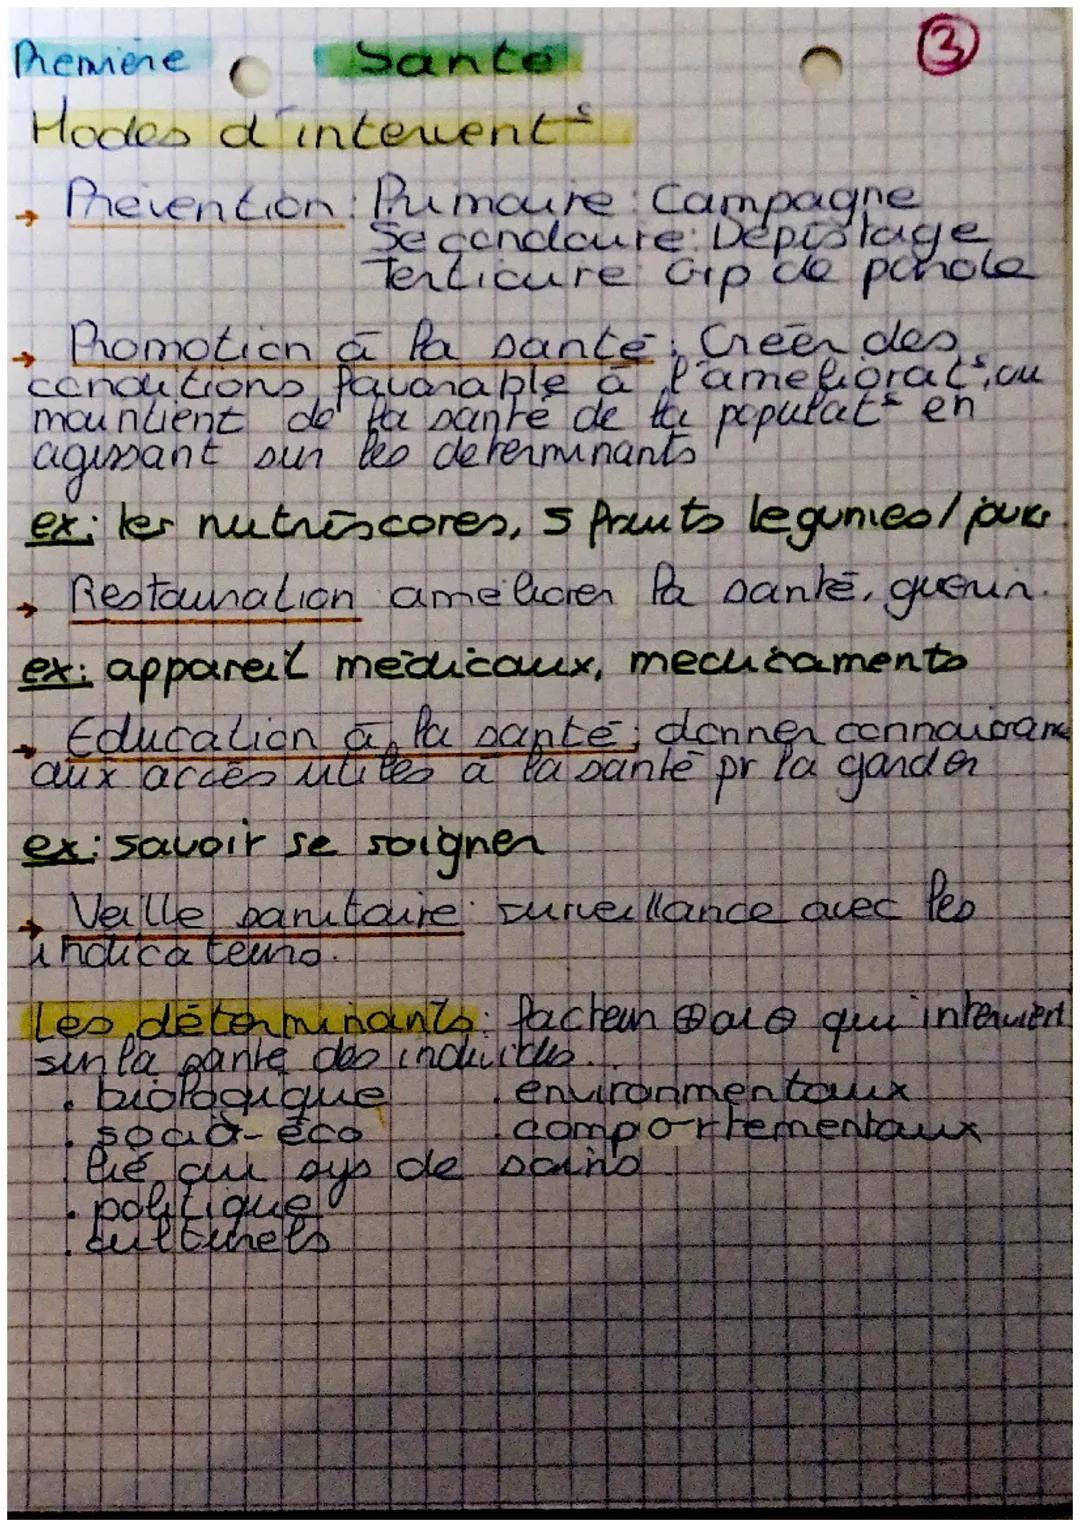 Première Santé 3
Modes d'intervent°
→ Prévention : Primaire : Campagne
Secondaire : Dépistage
Tertiaire : Grp de parole
→ Promotion à la santé : Créer des
conditions favorable à l'améliorat°, ou
maintient de la santé de la populat° en
agissant sur les déterminants
ex : les nutriscores, 5 fruits legumes/jours
→ Restauration améliorer la santé, guérir.
ex : appareil médicaux, medicaments
→ Education à la santé : donner connaissance
aux accès utiles à la santé pr la garder
ex : savoir se soigner
→ Veille sanitaire : surveillance avec les
indicateurs.
Les déterminants : facteur ⊕ ou ⊖ qui intervient
sur la santé des individus.
. biologique . environmentaux
. socio-éco . comportementaux
. lié au sys de soins
. politique
. culturels